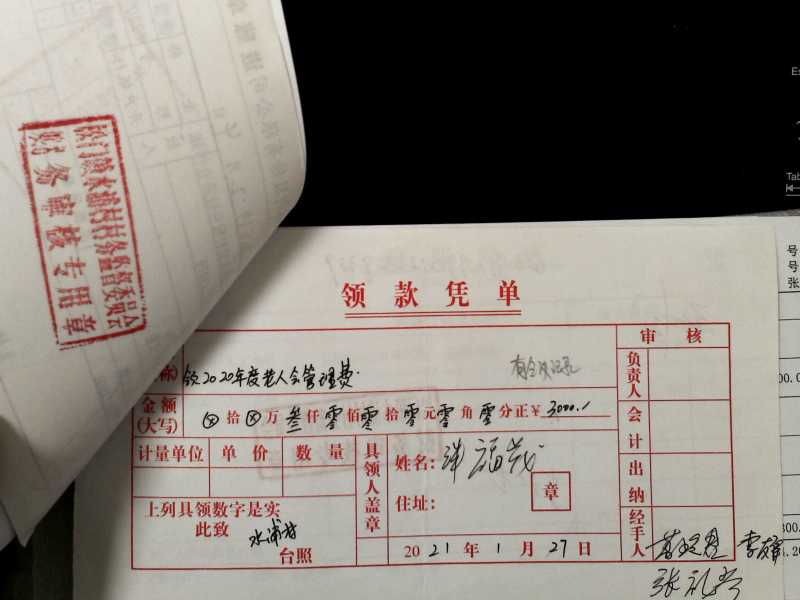 财务审核专用章
领款凭单
审核
领2020年度老人会管理费.
有会议记录
负责人
金额
(大写)
⊗拾⊗万叁仟零佰零拾零元零角零分正￥3000.1
会计
计量单位 单价 数量
具领人盖章
姓名:
住址:
章
出纳
上列具领数字是实
此致
水浦村
台照
2021年1月27日
经手人